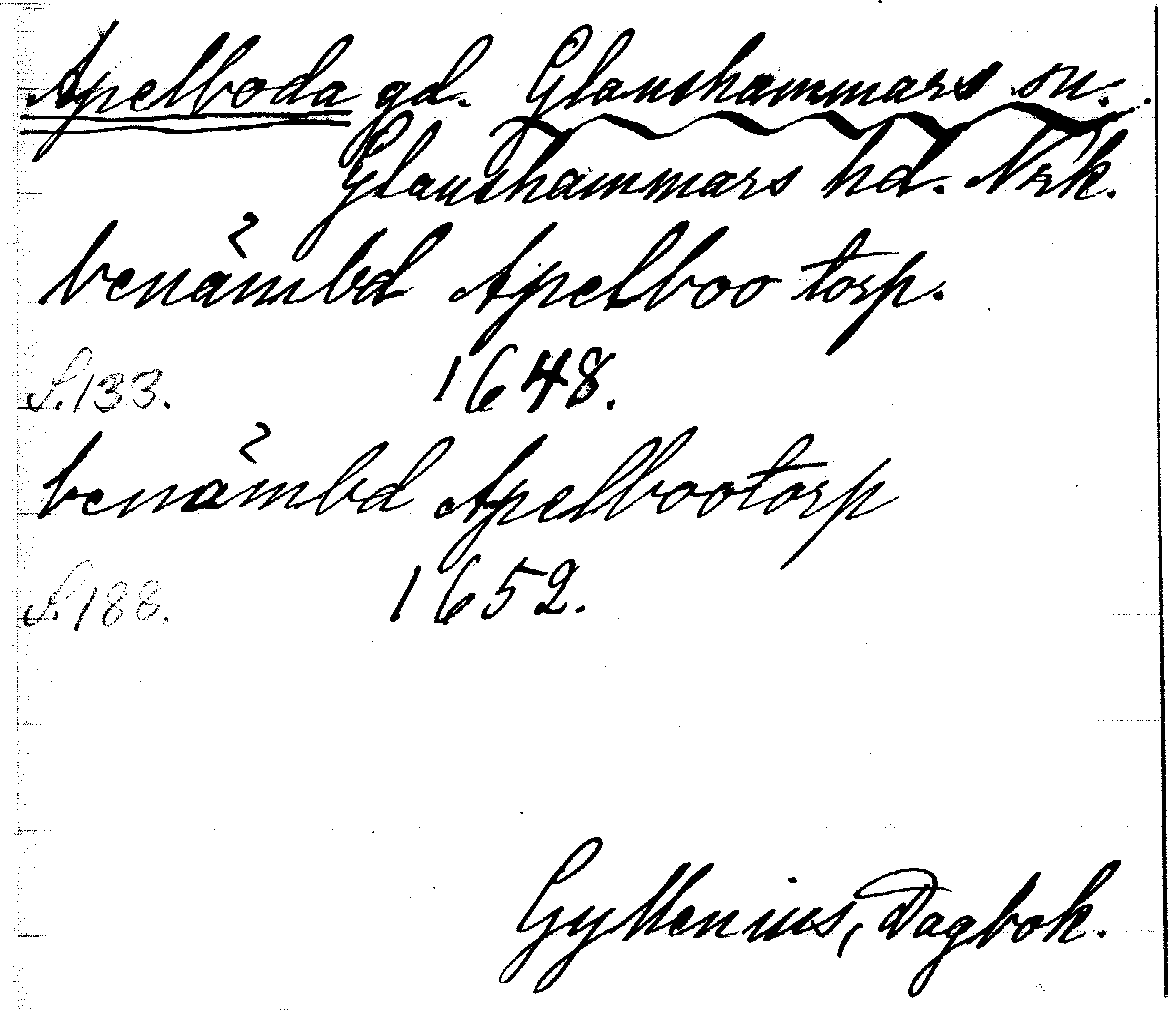 Apelboda gd. Glanshammars sn.
Glanshammars hd. Nrk.
benämbd Apelboo torp.
S. 133. 1648.
benämbd Apelbootorp
S. 188. 1652.
Gyllenius, Dagbok.